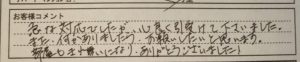 お客様コメント
急な対応でしたが、心良く引受けて下さいました。
また、何かありましたら、お願いしたいと思います。
部屋もキレイになり、ありがとうございました!